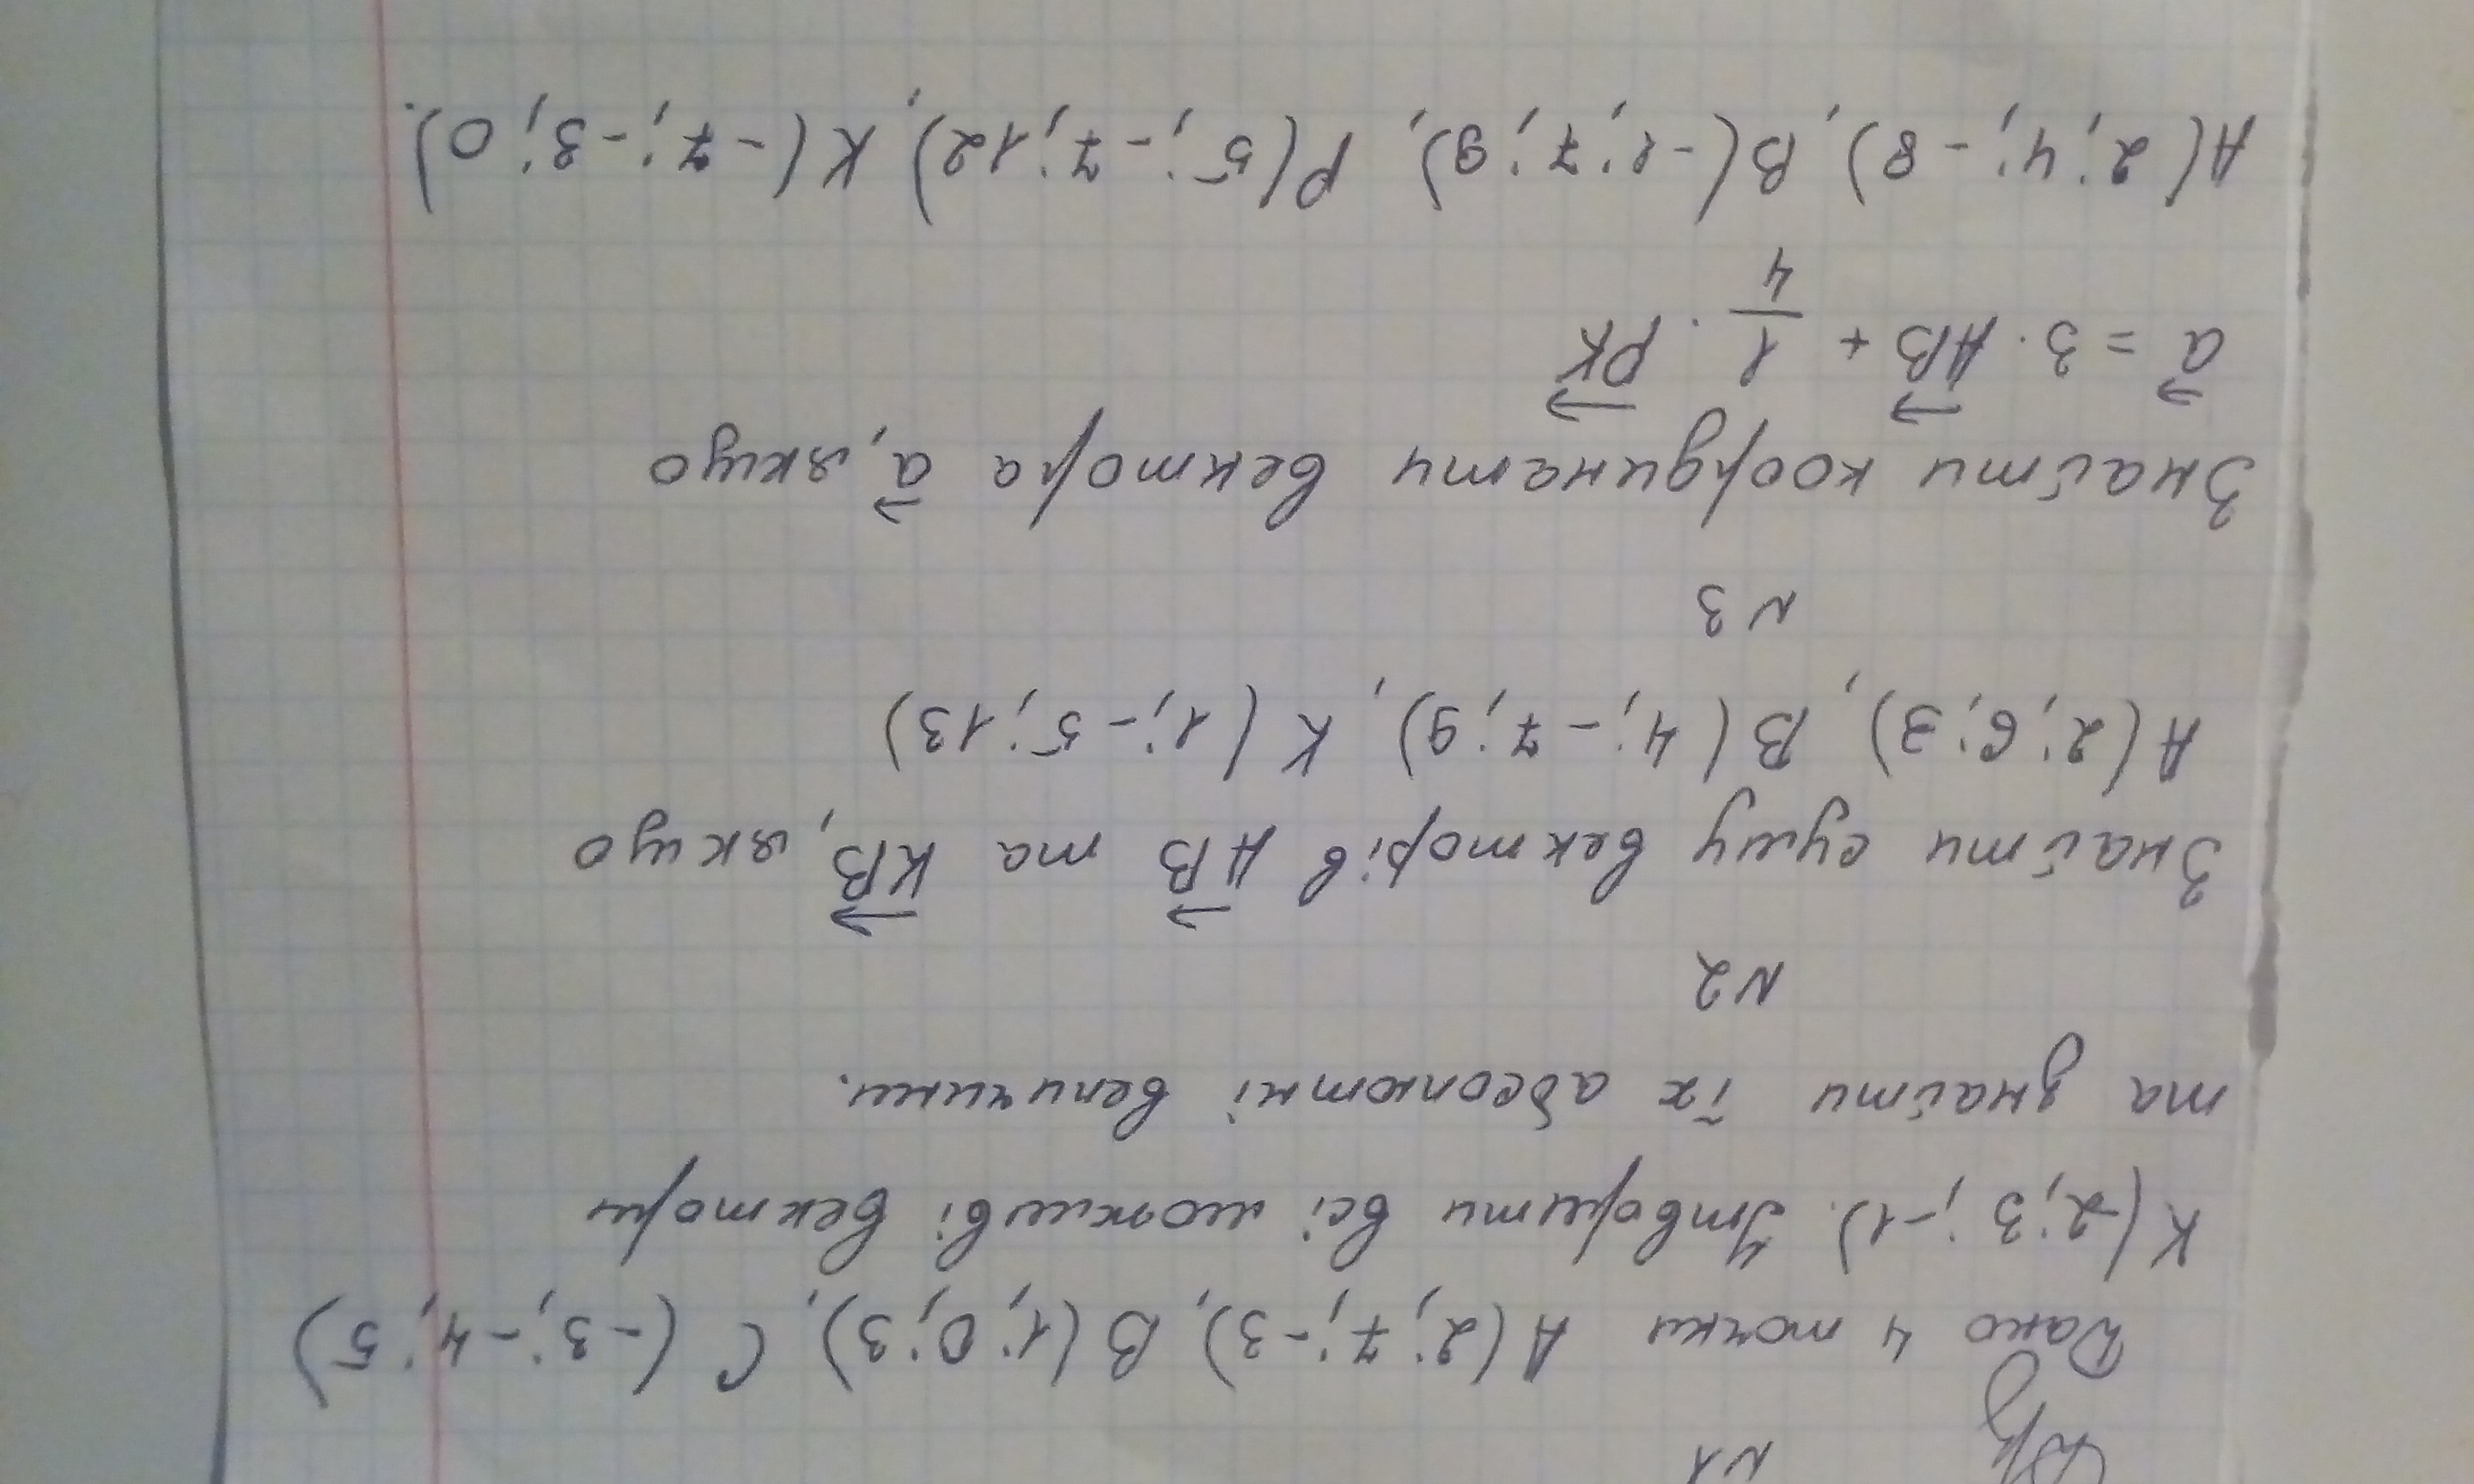 N1
Дз
Дано 4 точки A(2; 7; -3), B(1; 0; 3), C(-3; -4; 5)
K(-2; 3; -1). Утворити всі можливі вектори
та знайти їх абсолютні величини.
N2
Знайти суму векторів AB та KB, якщо
A(2; 6; 3), B(4; -7; 9), K(1; -5; 13)
N3
Знайти координати вектора a, якщо
a = 3 · AB + 1/4 · PK
A(2; 4; -8), B(-1; 7; 9), P(5; -7; 12), K(-7; -3; 0).